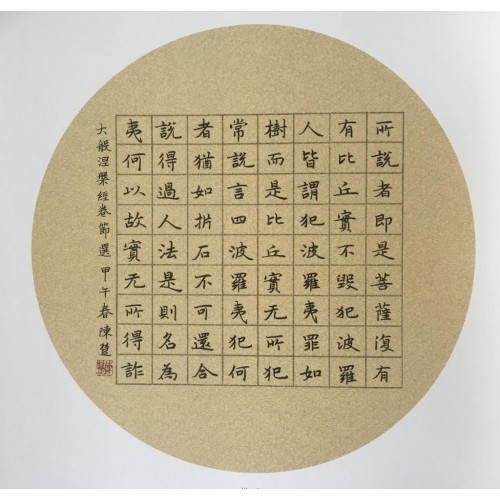 所說者即是菩薩復有
有比丘實不毀犯波羅
人皆謂犯波羅夷罪如
樹而是比丘實无所犯
常說言四波羅夷犯何
者猶如折石不可還合
說得過人法是則名為
夷何以故實无所得詐
大般涅槃經卷節選 甲午春陳楚